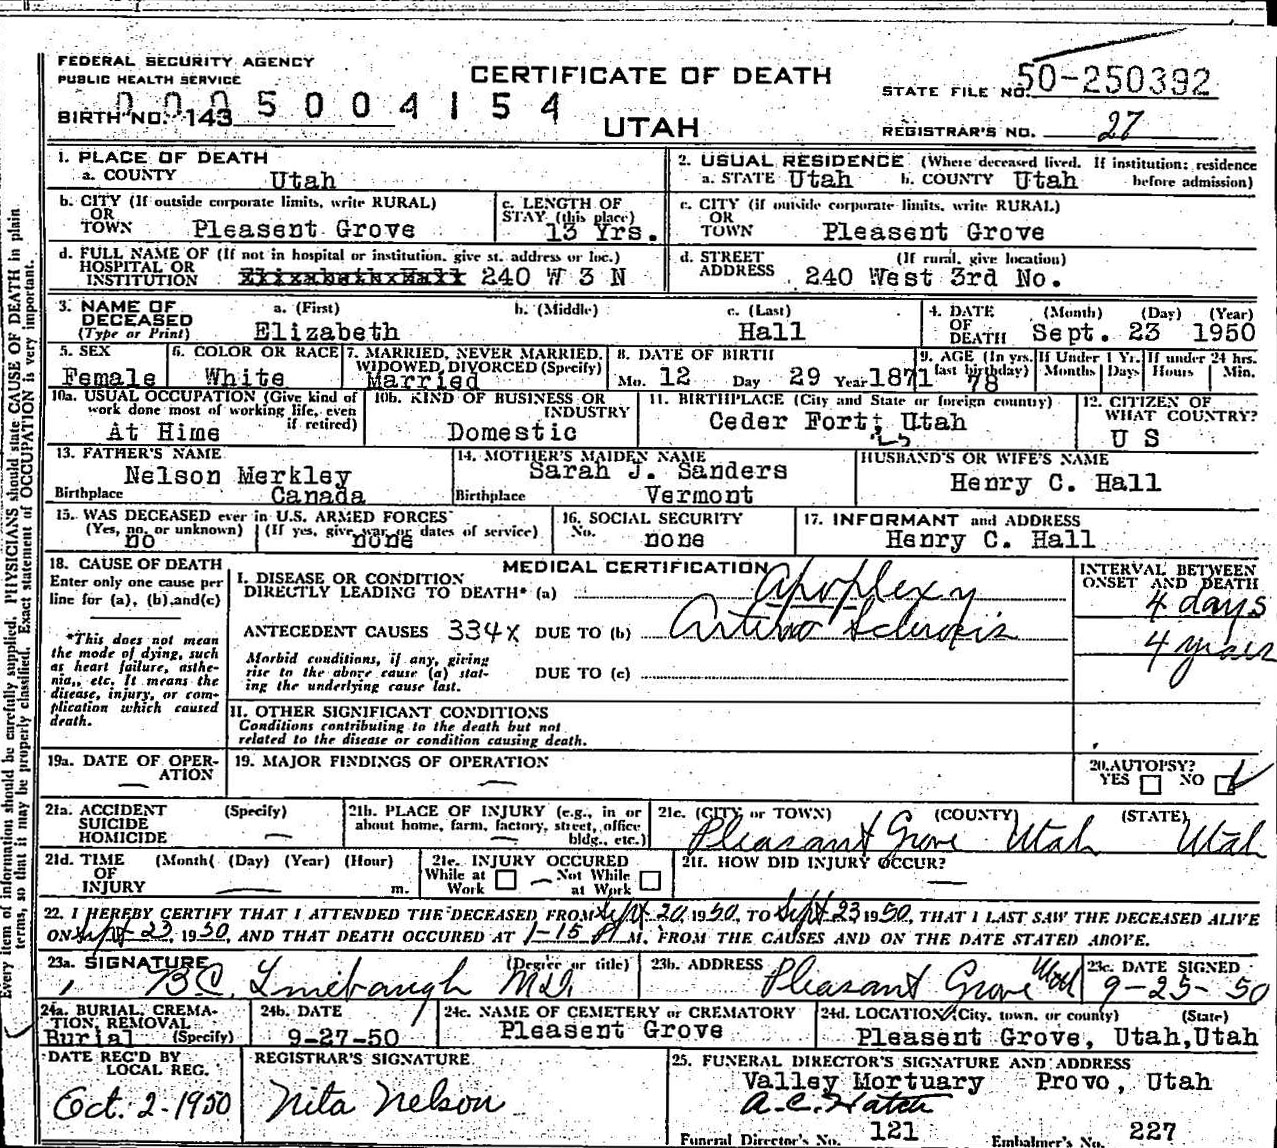 FEDERAL SECURITY AGENCY
PUBLIC HEALTH SERVICE
CERTIFICATE OF DEATH
STATE FILE NO. 50-250392
0005004154
BIRTH NO. 143
UTAH
REGISTRAR'S NO. 27
1. PLACE OF DEATH
a. COUNTY Utah
2. USUAL RESIDENCE (Where deceased lived. If institution: residence before admission)
a. STATE Utah b. COUNTY Utah
b. CITY (If outside corporate limits, write RURAL)
OR
TOWN Pleasent Grove
c. LENGTH OF
STAY (this place)
13 Yrs.
c. CITY (if outside corporate limits, write RURAL)
OR
TOWN Pleasent Grove
d. FULL NAME OF (If not in hospital or institution, give st. address or loc.)
HOSPITAL OR
INSTITUTION Elizabeth Hall 240 W 3 N
d. STREET (If rural, give location)
ADDRESS 240 West 3rd No.
3. NAME OF
DECEASED
(Type or Print)
a. (First) Elizabeth
b. (Middle)
c. (Last) Hall
4. DATE (Month) (Day) (Year)
OF
DEATH Sept. 23 1950
5. SEX
Female
6. COLOR OR RACE
White
7. MARRIED, NEVER MARRIED,
WIDOWED, DIVORCED (Specify)
Married
8. DATE OF BIRTH
Mo. 12 Day 29 Year 1871
9. AGE (In yrs. last birthday)
78
If Under 1 Yr.
Months Days
If under 24 hrs.
Hours Min.
10a. USUAL OCCUPATION (Give kind of
work done most of working life, even
if retired)
At Hime
10b. KIND OF BUSINESS OR
INDUSTRY
Domestic
11. BIRTHPLACE (City and State or foreign country)
Ceder Fort, Utah
12. CITIZEN OF
WHAT COUNTRY?
U S
13. FATHER'S NAME
Nelson Merkley
Birthplace Canada
14. MOTHER'S MAIDEN NAME
Sarah J. Sanders
Birthplace Vermont
HUSBAND'S OR WIFE'S NAME
Henry C. Hall
15. WAS DECEASED ever in U.S. ARMED FORCES
(Yes, no, or unknown) (If yes, give war or dates of service)
no none
16. SOCIAL SECURITY
No.
none
17. INFORMANT and ADDRESS
Henry C. Hall
18. CAUSE OF DEATH
Enter only one cause per
line for (a), (b), and (c)
*This does not mean
the mode of dying, such
as heart failure, asthe-
nia, etc. It means the
disease, injury, or com-
plication which caused
death.
MEDICAL CERTIFICATION
INTERVAL BETWEEN
ONSET AND DEATH
I. DISEASE OR CONDITION
DIRECTLY LEADING TO DEATH* (a) Apoplexy 4 days
ANTECEDENT CAUSES 334X DUE TO (b) Arterio Sclerosis 4 years
Morbid conditions, if any, giving
rise to the above cause (a) stat-
ing the underlying cause last.
DUE TO (c)
II. OTHER SIGNIFICANT CONDITIONS
Conditions contributing to the death but not
related to the disease or condition causing death.
19a. DATE OF OPER-
ATION
—
19. MAJOR FINDINGS OF OPERATION
—
20. AUTOPSY?
YES NO
21a. ACCIDENT (Specify)
SUICIDE
HOMICIDE —
21b. PLACE OF INJURY (e.g., in or
about home, farm, factory, street, office
bldg., etc.)
—
21c. (CITY or TOWN) (COUNTY) (STATE)
Pleasant Grove Utah Utah
21d. TIME (Month) (Day) (Year) (Hour)
OF
INJURY — m.
21e. INJURY OCCURED
While at Work Not While at Work
21f. HOW DID INJURY OCCUR?
—
22. I HEREBY CERTIFY THAT I ATTENDED THE DECEASED FROM Sept. 20, 1950, TO Sept 23 1950, THAT I LAST SAW THE DECEASED ALIVE
ON Sept 23, 1950, AND THAT DEATH OCCURED AT 1-15 P M. FROM THE CAUSES AND ON THE DATE STATED ABOVE.
23a. SIGNATURE (Degree or title)
B.C. Linebaugh M.D.
23b. ADDRESS
Pleasant Grove Utah
23c. DATE SIGNED
9-25-50
24a. BURIAL, CREMA-
TION, REMOVAL
Burial (Specify)
24b. DATE
9-27-50
24c. NAME OF CEMETERY or CREMATORY
Pleasent Grove
24d. LOCATION (City, town, or county) (State)
Pleasent Grove, Utah, Utah
DATE REC'D BY
LOCAL REG.
Oct. 2-1950
REGISTRAR'S SIGNATURE
Nita Nelson
25. FUNERAL DIRECTOR'S SIGNATURE AND ADDRESS
Valley Mortuary Provo, Utah
A.C. Hatch
Funeral Director's No. 121 Embalmer's No. 227
Every item of information should be carefully supplied. PHYSICIANS should state CAUSE OF DEATH in plain
terms, so that it may be properly classified. Exact statement of OCCUPATION is very important.